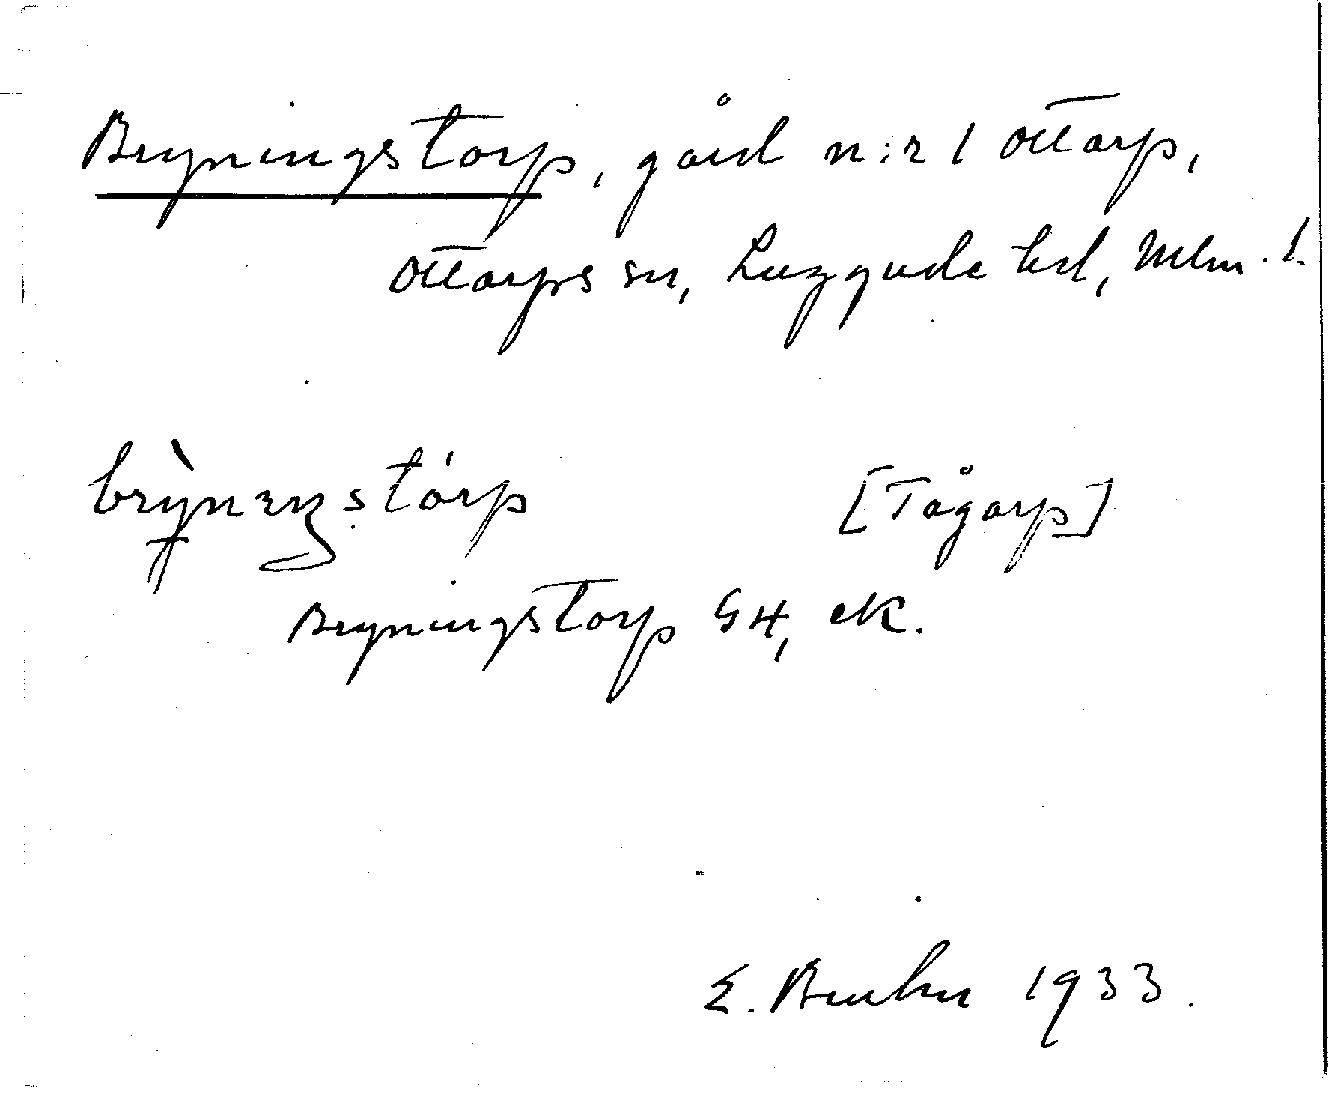 Bryningstorp, gård n:r 1 Ottarp,
Ottarps sn, Luggude hd, Mlm. l.
[Tågarp]
Bryningstorp GK, eK.
E. 1933.